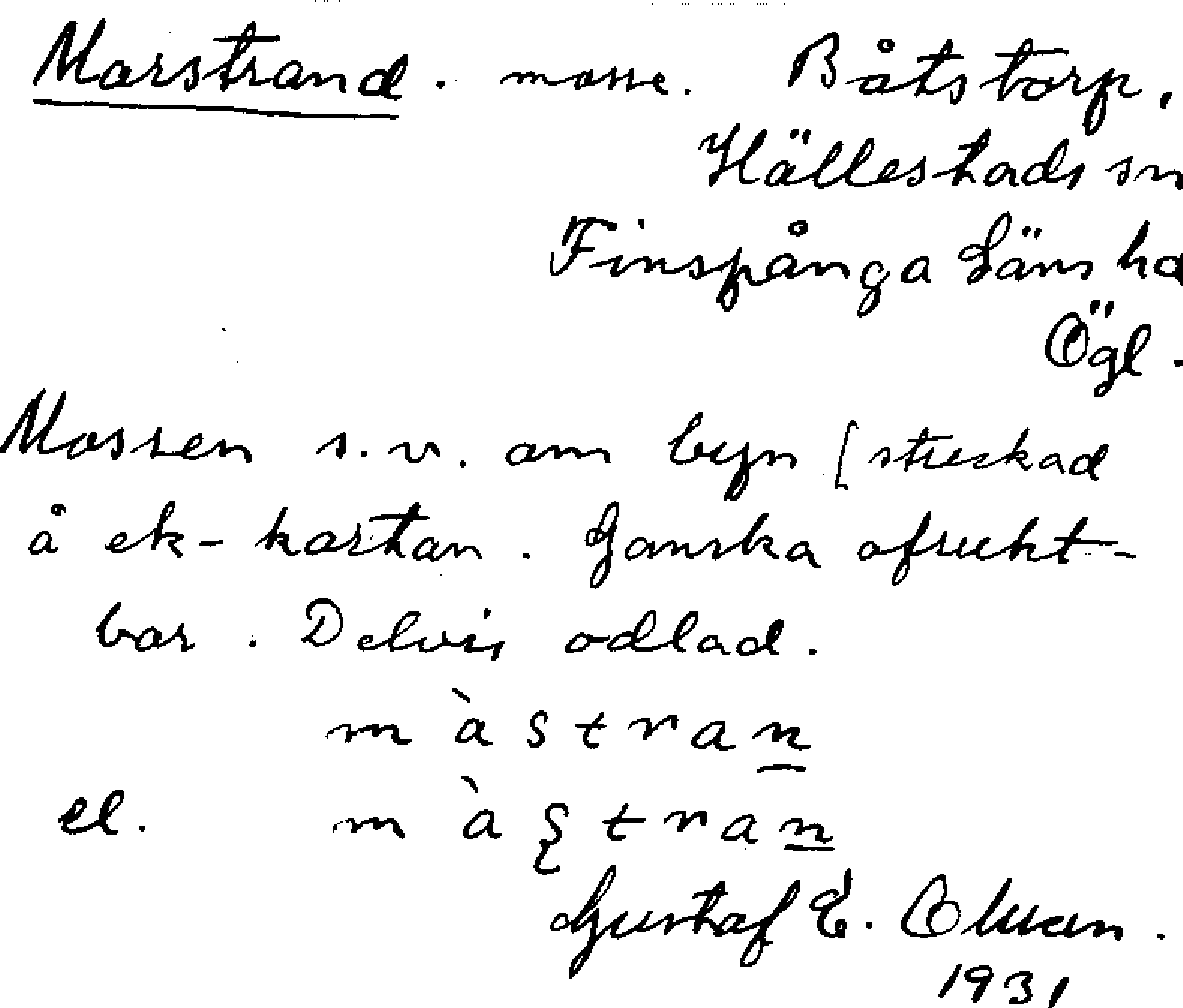 Marstrand. mosse. Båtstorp,
Hällestads sn
Finspånga Läns hd
Ögl.
Mossen s.v. om byn [streckad
å ek-kartan. Ganska ofrukt-
bar. Delvis odlad.
màstran
el. màştran
Gustaf E.
1931